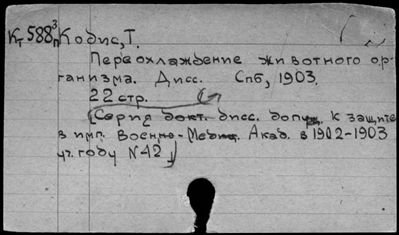 Кт 588³п Кодис, Т.
Переохлаждение животного ор-
ганизма. Дисс. Спб, 1903.
22 стр.
(Серия докт. дисс. допущ. к защите
в имп. Военно-Медиц. Акад. в 1902-1903
уч. году N 42)